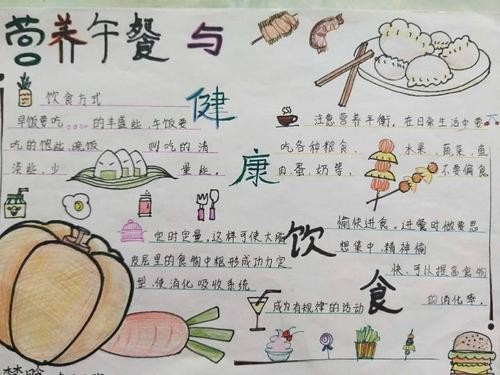 营养午餐与
健康饮食
饮食方式
早饭要吃……的丰盛些,午饭要
吃的饱些,晚饭则吃的清
淡些,少量些。
定时定量,这样可使大脑
皮层里的食物中枢形成功力定
型,使消化吸收系统
成为有规律的活动
注意营养平衡,在日常生活中要
吃各种粮食、水果、蔬菜、鱼
肉、蛋、奶等,不要偏食
愉快进食,进餐时做要思
想集中,精神愉
快,可以提高食物
的消化率。